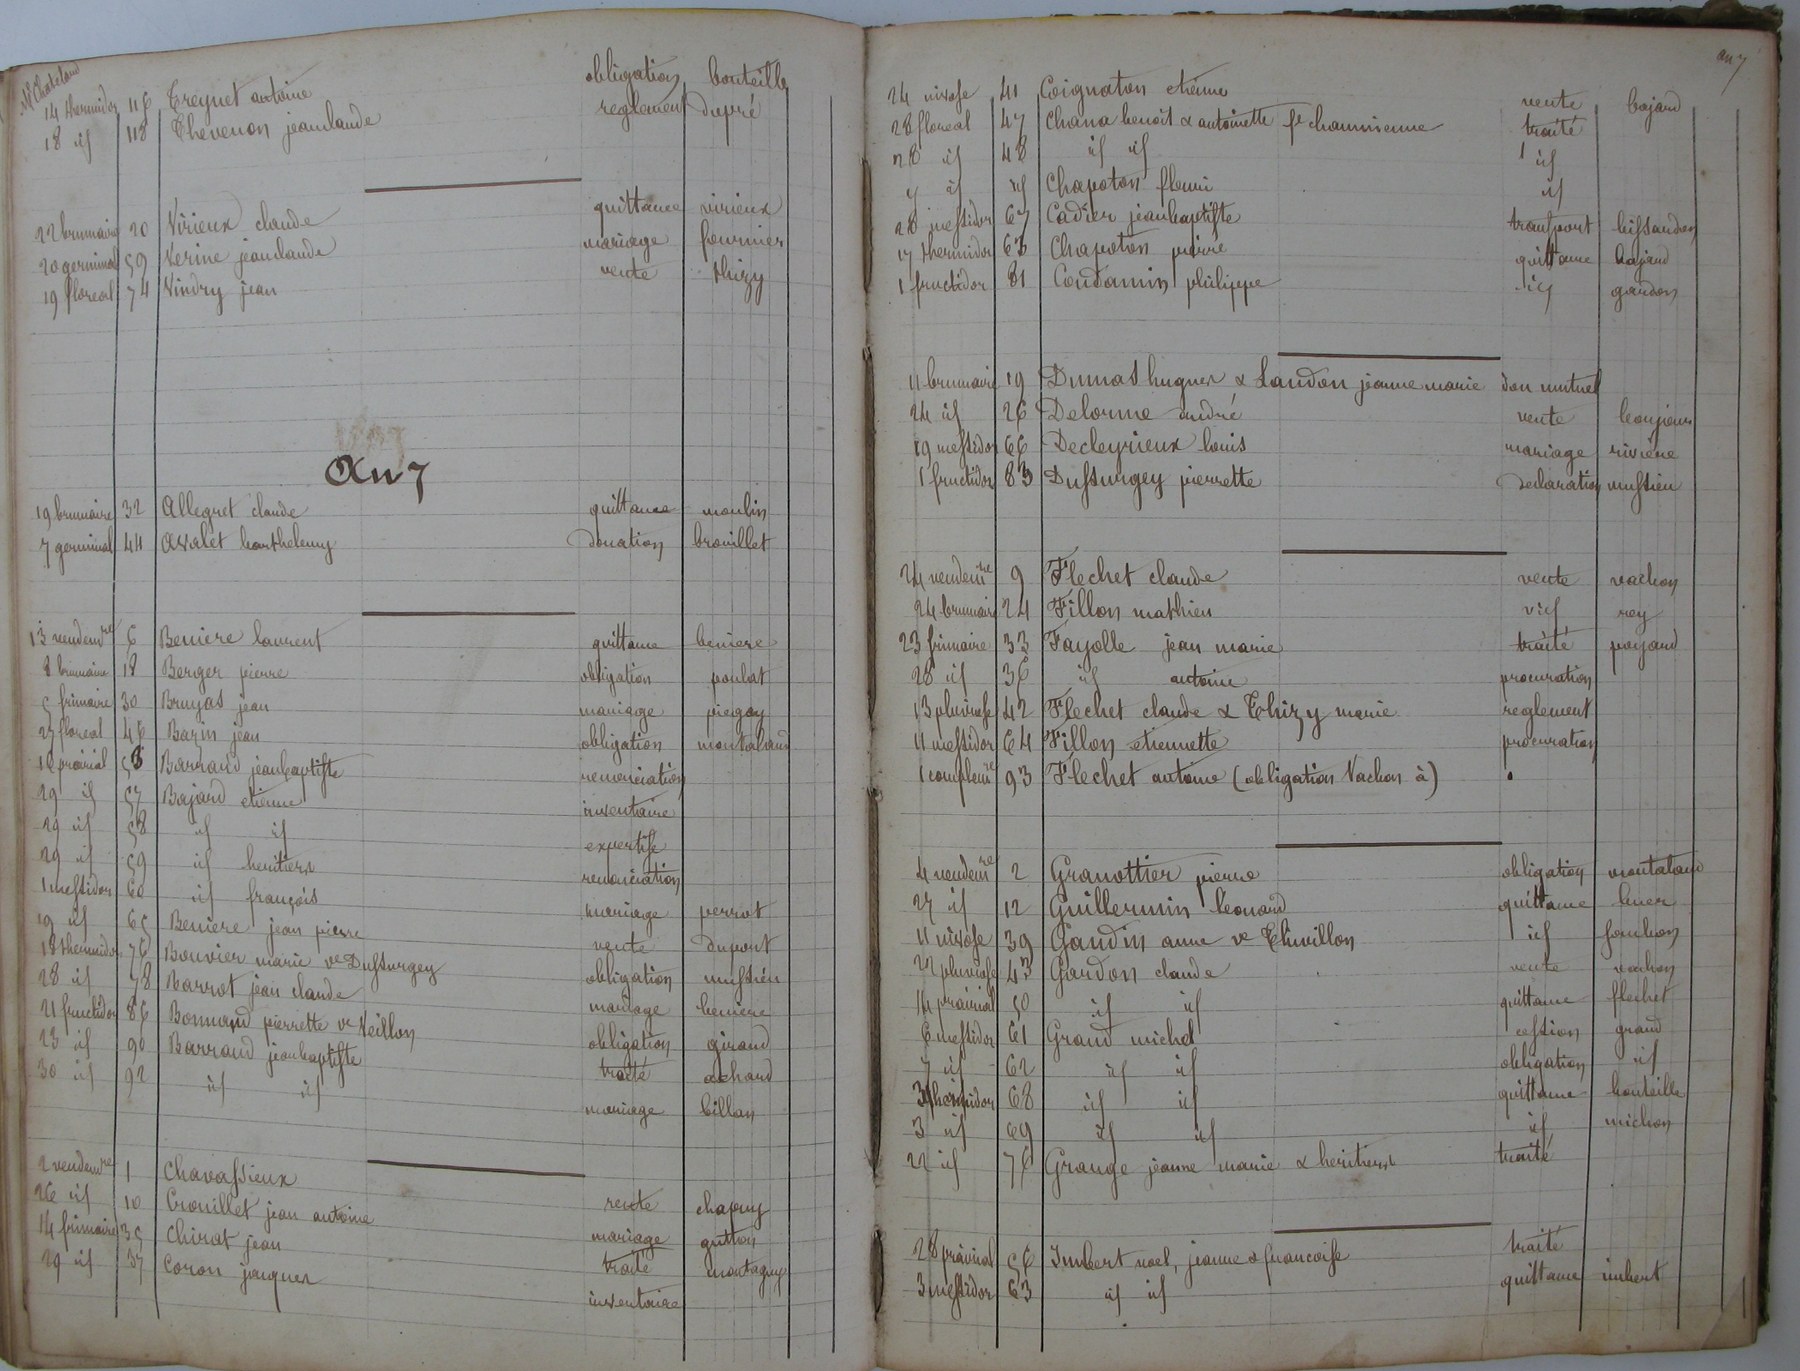 Mr Chateland
14 thermidor 116 Treynet antoine obligation bouteille
18 id 118 Thevenon jeanclaude reglement dupré
22 brumaire 20 Virieux claude quittance virieux
20 germinal 59 Verine jeanclaude mariage fournier
19 floreal 74 Vindry jean vente thizy
An 7
19 brumaire 32 Allegret claude quittance moulin
7 germinal 44 Avalet barthelemy donation brouillet
13 vendemre 6 Beniere laurent quittance beniere
8 brumaire 18 Berger pierre obligation poulat
5 frimaire 30 Bruyas jean mariage piegay
27 floreal 46 Bazin jean obligation montaland
16 prairial 58 Barraud jeanbaptiste renonciation
29 id 57 Bajard etienne inventaire
29 id 58 id id expertise
29 id 59 id heritiers renonciation
1 messidor 60 id françois mariage perrot
19 id 65 Beniere jean pierre vente dupont
18 thermidor 76 Bouvier marie ve Dussurgey obligation mussieu
28 id 78 Barrot jean claude mariage beniere
21 fructidor 86 Bonnand pierrette ve Veillon obligation giraud
23 id 90 Barraud jeanbaptiste traité achard
30 id 92 id id mariage billan
2 vendemre 1 Chavassieux vente chapuy
26 id 10 Crouillet jean antoine mariage guitton
14 frimaire 35 Chirat jean traité montagny
29 id 37 Coron jacques inventaire
an 7
24 nivose 41 Coignaton etienne vente bajard
28 floreal 47 Chana benoit & antoinette fe chaumienne traité
28 id 48 id id id
id id Chapoton fleuri id
28 messidor 67 Cadier jeanbaptiste transport bissardon
17 thermidor 63 Chapoton pierre quittance bajard
1 fructidor 81 Coudamin philippe id gardon
11 brumaire 19 Dumas hugues & Landon jeanne marie don mutuel
24 id 26 Delorme andré vente
19 messidor 66 Decleyrieux louis mariage riviere
1 fructidor 83 Dussurgey pierrette declaration mussieu
24 vendemre 9 Flechet claude vente vachon
24 brumaire 24 Fillon mathieu id rey
23 frimaire 33 Fayolle jean marie traité poyard
28 id 36 id antoine procuration
13 pluviose 42 Flechet claude & Thizy marie reglement
11 messidor 64 Fillon etiennette procuration
1 complemre 93 Flechet antoine (obligation Vachon à)
4 vendemre 2 Granottier pierre obligation montaland
27 id 12 Guillermin leonard quittance
11 nivose 39 Gaudin anne ve Thivillon id
22 pluviose 43 Gardon claude vente vachon
14 prairial 50 id id quittance flechet
6 messidor 61 Grand michel cession grand
7 id 62 id id obligation id
3 thermidor 68 id id quittance bouteille
3 id 69 id id id michon
22 id 76 Grange jeanne marie & heritiers traité
28 prairial 56 Imbert noel, jeanne & francoise traité
3 messidor 63 id id quittance imbert